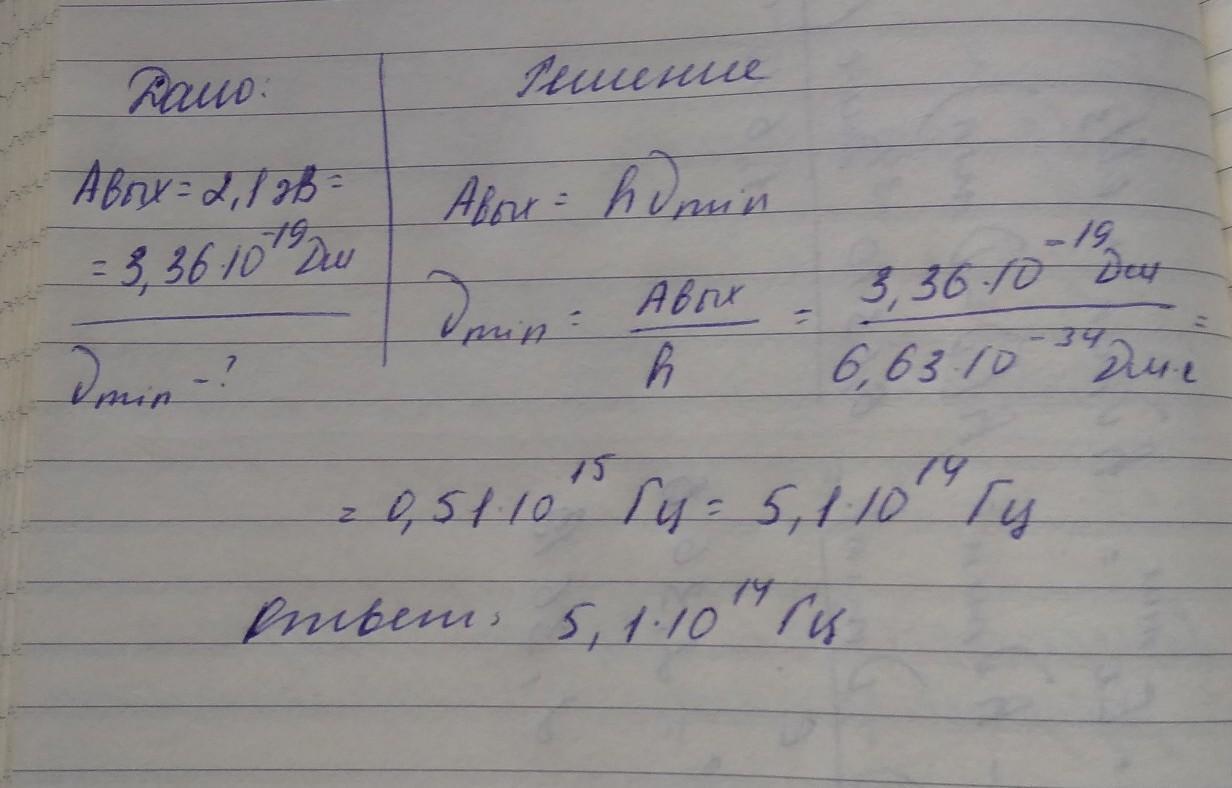 Дано:
Решение
Aвых = 2,1 эВ =
= 3,36·10⁻¹⁹ Дж
νmin - ?
Aвых = hνmin
νmin = Aвых / h = 3,36·10⁻¹⁹ Дж / 6,63·10⁻³⁴ Дж·с =
= 0,51·10¹⁵ Гц = 5,1·10¹⁴ Гц
Ответ: 5,1·10¹⁴ Гц